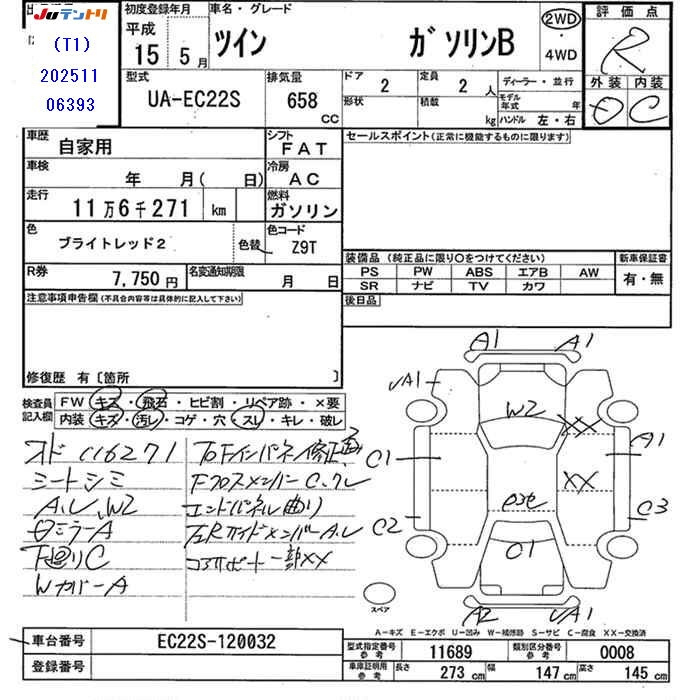 Juテントリ
(T1)
202511
06393
初度登録年月
平成
15年 5月
車名・グレード
ツイン ガソリンB
2WD
・
4WD
評価点
R
外装 内装
C
型式
UA-EC22S
排気量
658
CC
ドア
2
定員
2 人
形状
積載
kg
ディーラー・並行
モデル年式 年
ハンドル 左・右
車歴
自家用
シフト
FAT
車検
年 月( 日)
冷房
AC
走行
11万6千271 km
燃料
ガソリン
色
ブライトレッド2
色替
色コード
Z9T
R券
7,750円
名変通知期限
月 日
セールスポイント(正常に機能するものに限ります)
装備品(純正品に限り○をつけてください)
PS PW ABS エアB AW
SR ナビ TV カワ
新車保証書
有・無
後日品
注意事項申告欄(不具合内容等は具体的に記入して下さい)
修復歴 有〔箇所 〕
検査員記入欄
FW キズ・飛石・ヒビ割・リペア跡・×要
内装 キズ・汚レ・コゲ・穴・スレ・キレ・破レ
シートシミ
A.L.W2
ミラーA
下廻りC
WカバーA
エンドパネル曲り
コアサポート一部XX
A1 A1
A1
W2
XX
A1
C1
XX
C2
C3
01
A2 A1
スペア
A−キズ E−エクボ U−凹み W−補修跡 S−サビ C−腐食 XX−交換済
車台番号
EC22S-120032
登録番号
型式指定番号 参考
11689
類別区分番号 参考
0008
車庫証明用 参考
長さ 273 cm
幅 147 cm
高さ 145 cm